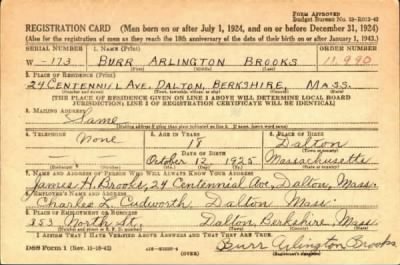 FORM APPROVED
Budget Bureau No.
REGISTRATION CARD (Men born on or after July 1, 1924, and on or before December 31, 1924)
(Also for the registration of men as they reach the 18th anniversary of the date of their birth on or after January 1, 1943.)
SERIAL NUMBER 1. NAME (Print) ORDER NUMBER
W -173 BURR ARLINGTON BROOKS 11,990
2. PLACE OF RESIDENCE (Print)
24 CENTENNIL AVE, DALTON, BERKSHIRE, MASS.
(THE PLACE OF RESIDENCE GIVEN ON LINE 2 ABOVE WILL DETERMINE LOCAL BOARD
JURISDICTION; LINE 2 OF REGISTRATION CERTIFICATE WILL BE IDENTICAL)
3. MAILING ADDRESS
Same
4. TELEPHONE 5. AGE IN YEARS 6. PLACE OF BIRTH
None 18 Dalton
DATE OF BIRTH
October 12, 1925 Massachusetts
7. NAME AND ADDRESS OF PERSON WHO WILL ALWAYS KNOW YOUR ADDRESS
James H. Brooks, 24 Centennial Ave, Dalton, Mass.
8. EMPLOYER'S NAME AND ADDRESS
Charles L. Cudworth, Dalton Mass.
9. PLACE OF EMPLOYMENT OR BUSINESS
353 North St, Dalton, Berkshire, Mass.
I AFFIRM THAT I HAVE VERIFIED ABOVE ANSWERS AND THAT THEY ARE TRUE.
DSS Form 1 (OVER) Burr Arlington Brooks